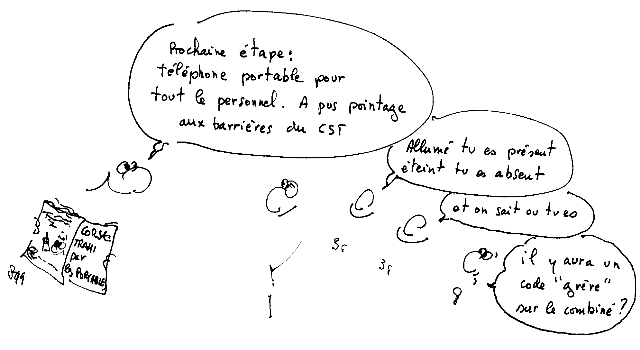 Prochaine étape:
téléphone portable pour
tout le personnel. A pus pointage
aux barrières du CSF
Allumé tu es présent
éteint tu es absent
et on sait ou tu es
il y aura un
code "grève"
sur le combiné ?
CORSE
TRAHI
par
PORTABLE